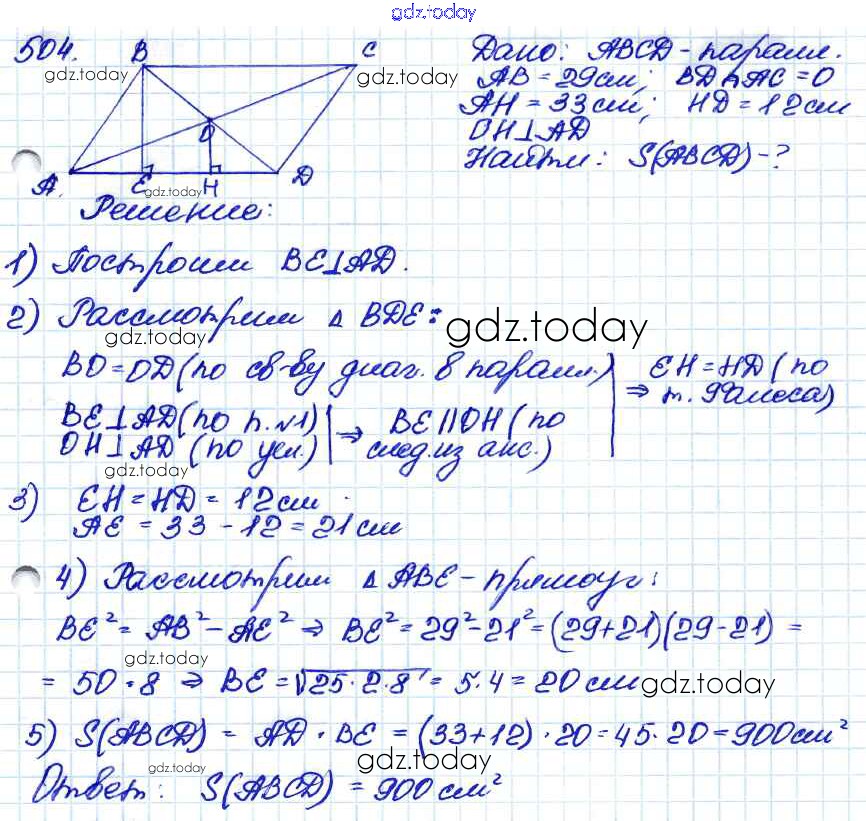 gdz.today
504.
B
C
gdz.today
gdz.today
O
A
E
H
D
gdz.today
Дано: ABCD - парал.
AB = 29 см; BD ∩ AC = O
AH = 33 см; HD = 12 см
OH ⊥ AD
Найти: S(ABCD) - ?
Решение:
1) Построим BE ⊥ AD.
2) Рассмотрим Δ BDE:
gdz.today
gdz.today
BO = OD (по св-ву диаг. в парал.)
BE ⊥ AD (по п. №1)
OH ⊥ AD (по усл.)
⇒ BE || OH (по
след. из акс.)
EH = HD (по
⇒ т. Фалеса)
gdz.today
3) EH = HD = 12 см
AE = 33 - 12 = 21 см
4) Рассмотрим Δ ABE - прямоуг:
BE² = AB² - AE² ⇒ BE² = 29² - 21² = (29+21)(29-21) =
gdz.today
= 50 · 8 ⇒ BE = √25·2·8 = 5·4 = 20 см
gdz.today
5) S(ABCD) = AD · BE = (33+12) · 20 = 45 · 20 = 900 см²
gdz.today
gdz.today
Ответ: S(ABCD) = 900 см²